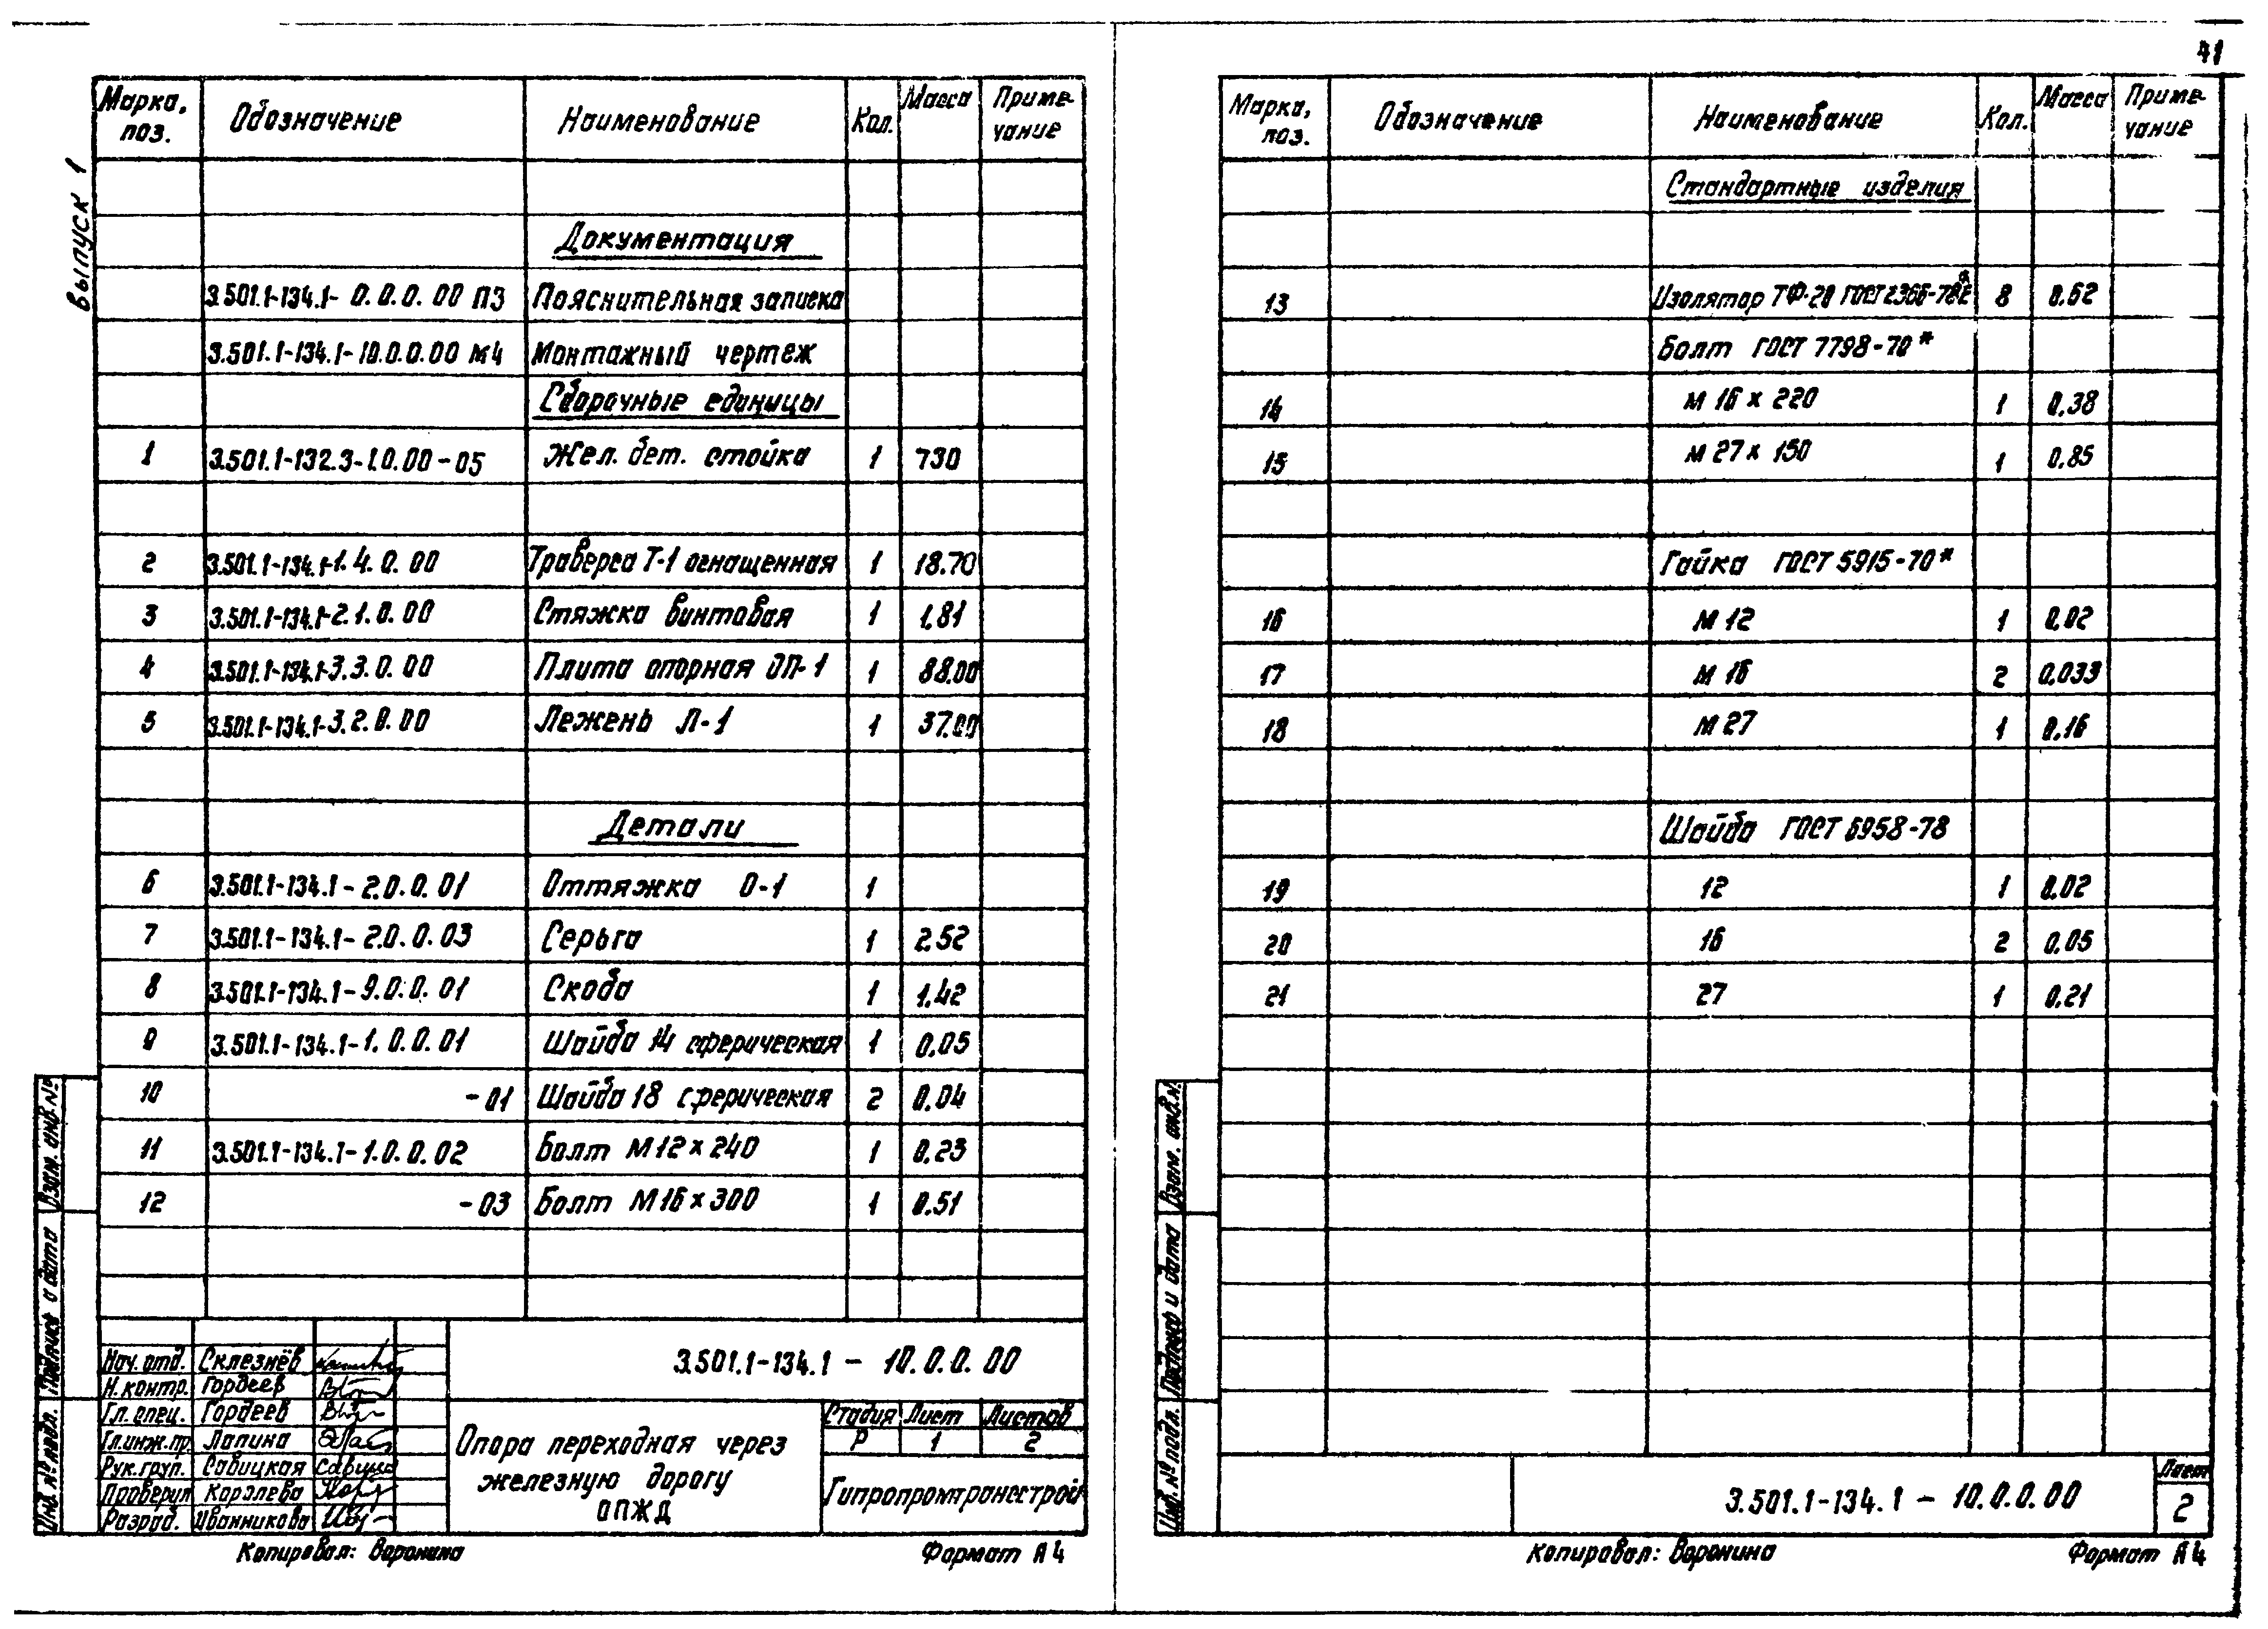 41
Выпуск 1
Марка, поз. Обозначение Наименование Кол. Масса Примечание
Документация
3.501.1-134.1-0.0.0.00 ПЗ Пояснительная записка
3.501.1-134.1-10.0.0.00 МЧ Монтажный чертеж
Сборочные единицы
1 3.501.1-132.3-1.0.00-05 Жел. бет. стойка 1 730
2 3.501.1-134.1-1.4.0.00 Траверса Т-1 оснащенная 1 18.70
3 3.501.1-134.1-2.1.0.00 Стяжка винтовая 1 1.81
4 3.501.1-134.1-3.3.0.00 Плита опорная ОП-1 1 88.00
5 3.501.1-134.1-3.2.0.00 Лежень Л-1 1 37.00
Детали
6 3.501.1-134.1-2.0.0.01 Оттяжка О-1 1
7 3.501.1-134.1-2.0.0.03 Серьга 1 2.52
8 3.501.1-134.1-9.0.0.01 Скоба 1 1.42
9 3.501.1-134.1-1.0.0.01 Шайба 14 сферическая 1 0.05
10 -01 Шайба 18 сферическая 2 0.04
11 3.501.1-134.1-1.0.0.02 Болт М12×240 1 0.23
12 -03 Болт М16×300 1 0.51
Взам. инв. №
Подпись и дата
Инв. № подл.
Нач. отд. Склезнёв
Н. контр. Гордеев
Гл. спец. Гордеев
Гл. инж. пр. Лапина
Рук. груп. Савицкая
Проверил Королева
Разраб. Иванникова
3.501.1-134.1 - 10.0.0.00
Опора переходная через
железную дорогу
ОПЖД
Стадия Лист Листов
Р 1 2
Гипропромтрансстрой
Копировал: Воронина Формат А4
Марка, поз. Обозначение Наименование Кол. Масса Примечание
Стандартные изделия
13 Изолятор ТФ-20 ГОСТ 2366-78 8 0.62
Болт ГОСТ 7798-70*
14 М 16 × 220 1 0.38
15 М 27 × 150 1 0.85
Гайка ГОСТ 5915-70*
16 М 12 1 0.02
17 М 16 2 0.033
18 М 27 1 0.16
Шайба ГОСТ 6958-78
19 12 1 0.02
20 16 2 0.05
21 27 1 0.21
Взам. инв. №
Подпись и дата
Инв. № подл.
3.501.1-134.1 - 10.0.0.00
Лист
2
Копировал: Воронина Формат А4